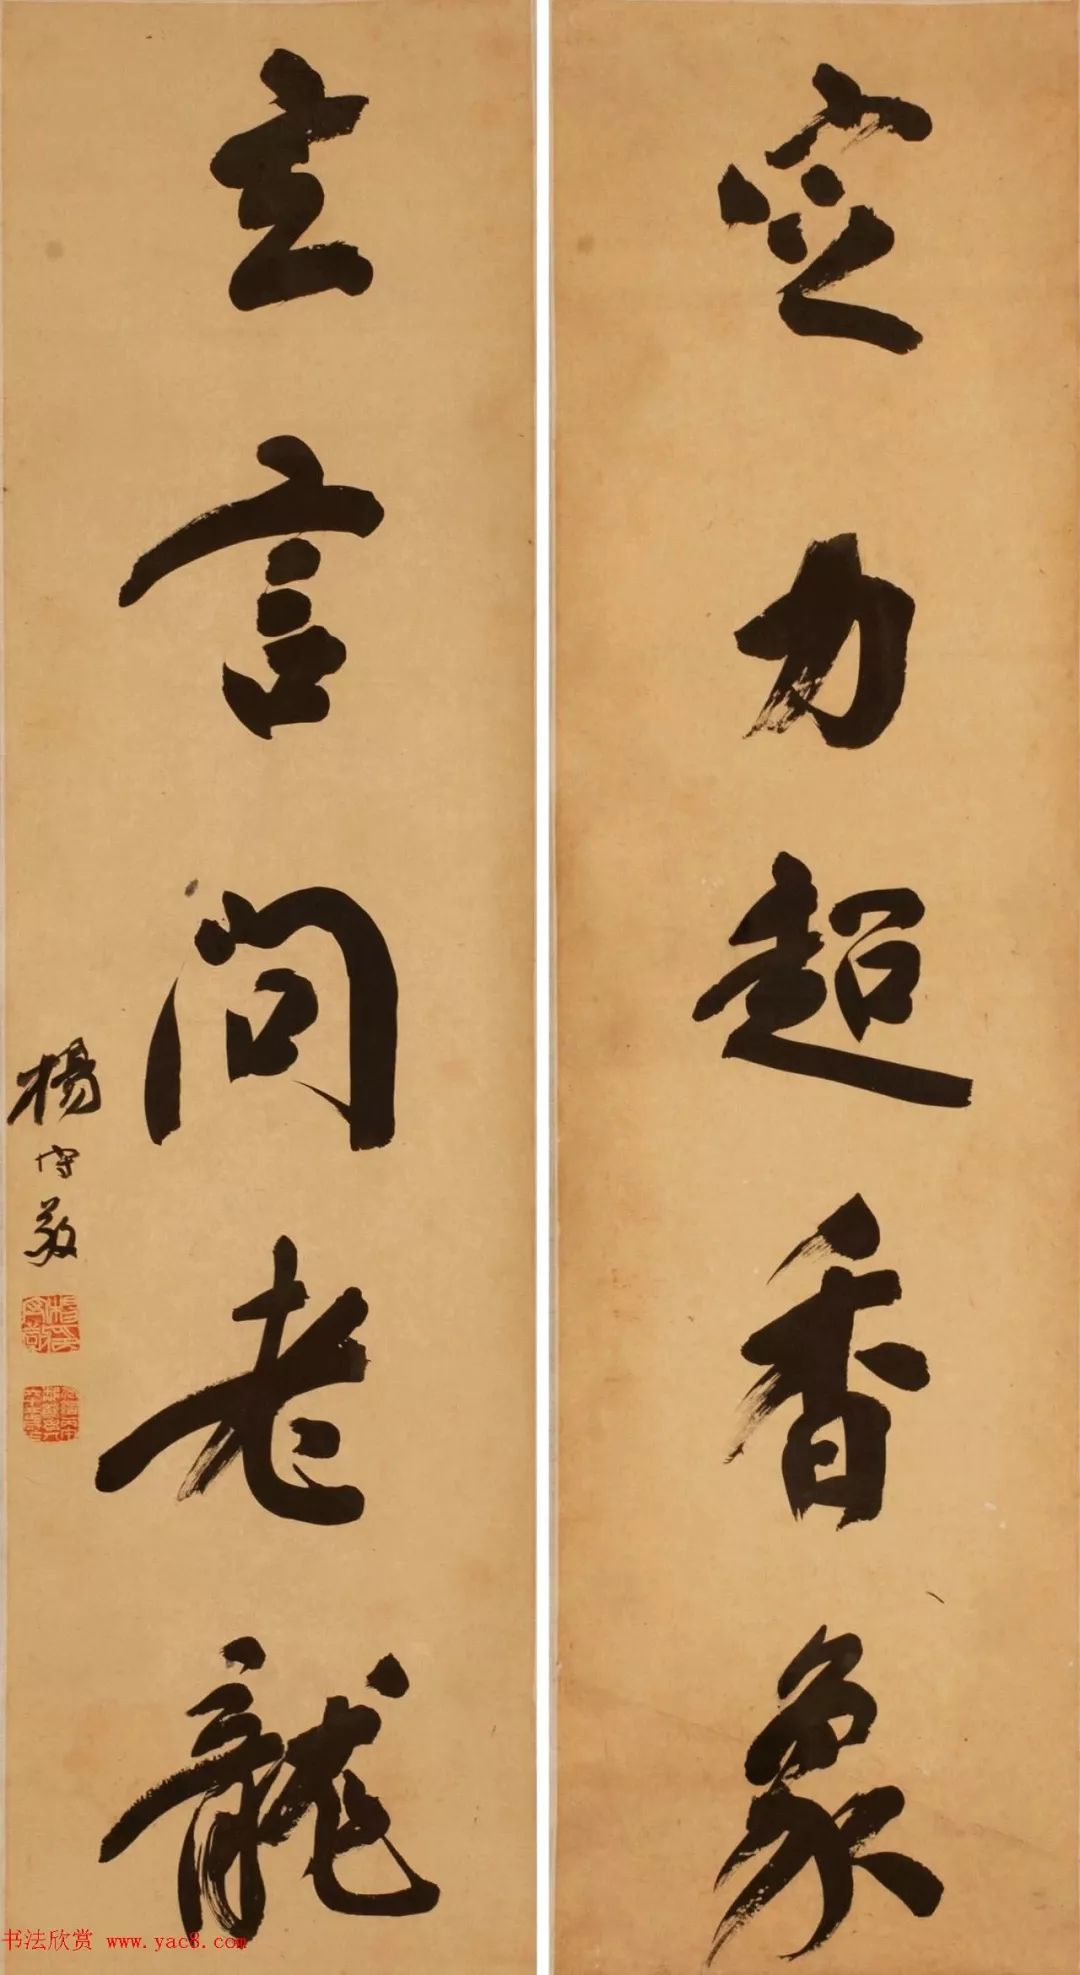 定力超香象
玄言問老龍
楊守敬
书法欣赏 www.yac8.com